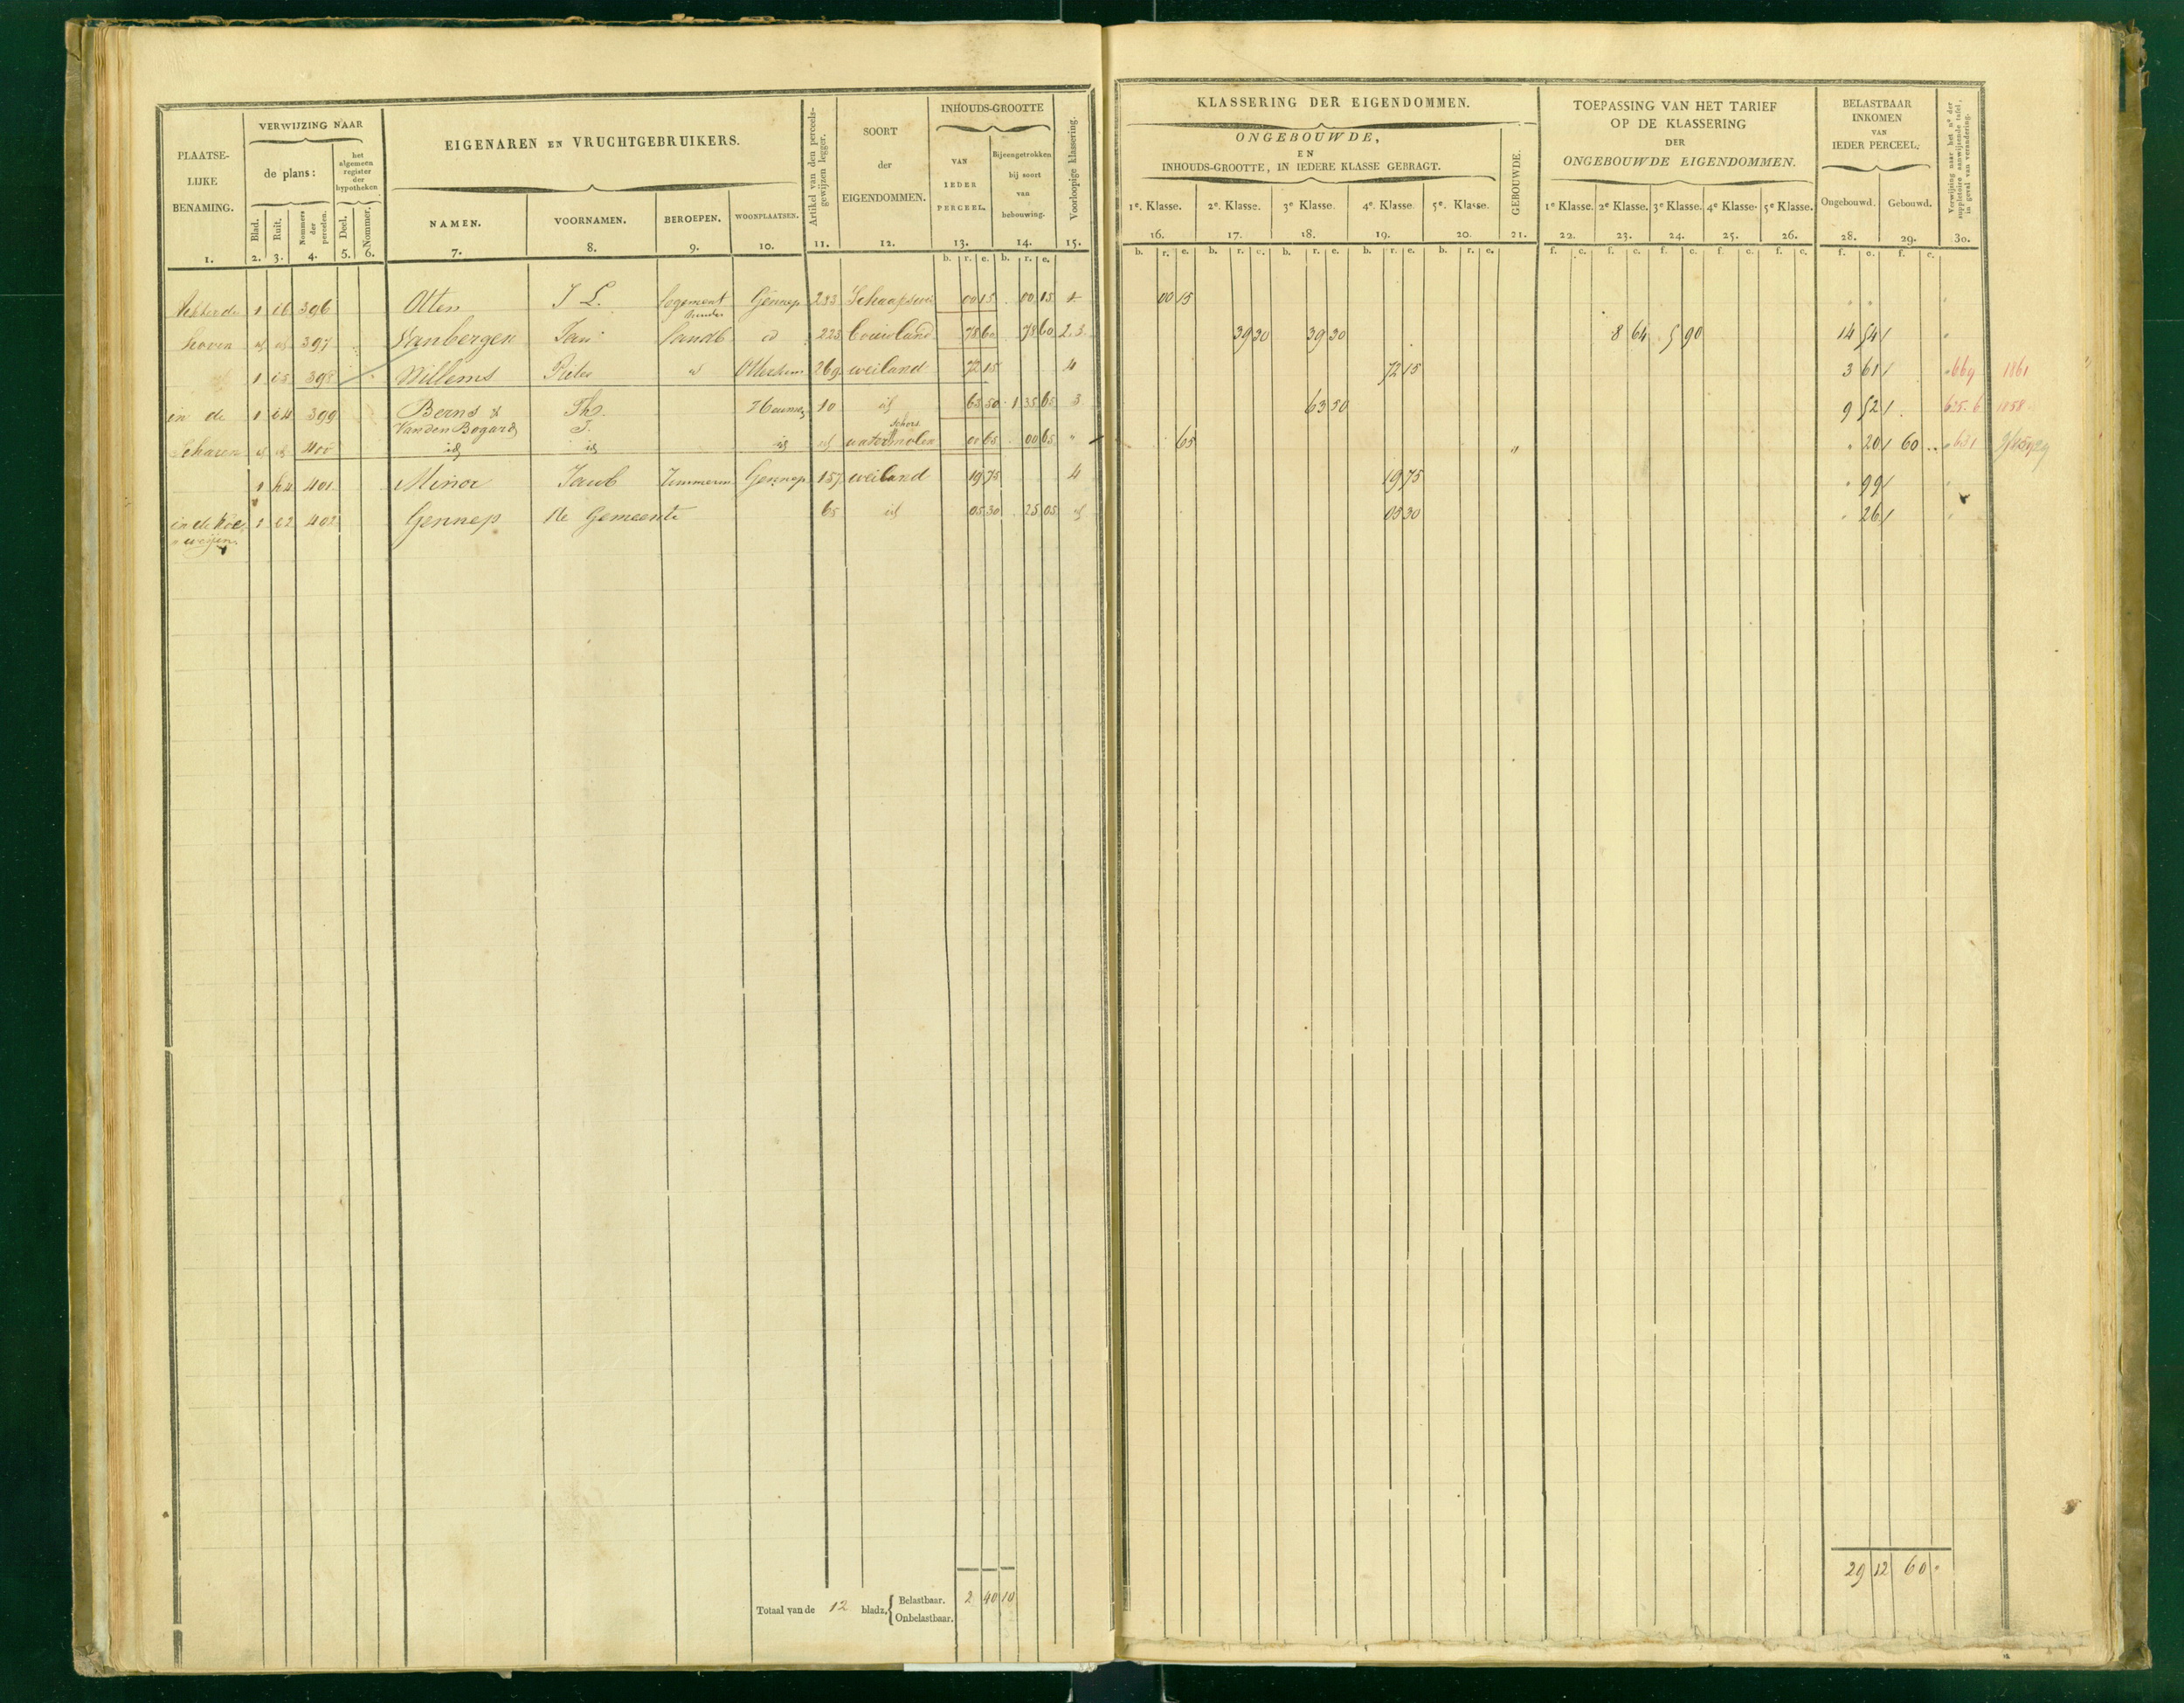 PLAATSE-
LIJKE
BENAMING.
1.
VERWIJZING NAAR
de plans:
Blad.
2.
Ruit.
3.
Nommers
der
perceelen.
4.
het
algemeen
register
der
hypotheken
Deel.
5.
Nommer.
6.
EIGENAREN EN VRUCHTGEBRUIKERS.
NAMEN.
7.
VOORNAMEN.
8.
BEROEPEN.
9.
WOONPLAATSEN.
10.
Artikel van den perceels-
gewijzen legger.
11.
SOORT
der
EIGENDOMMEN.
12.
INHOUDS-GROOTTE
VAN
IEDER
PERCEEL.
13.
Bijeengetrokken
bij soort
van
bebouwing.
14.
Voorloopige klassering.
15.
KLASSERING DER EIGENDOMMEN.
ONGEBOUWDE,
EN
INHOUDS-GROOTTE, IN IEDERE KLASSE GEBRAGT.
1e. Klasse.
16.
2e. Klasse.
17.
3e Klasse.
18.
4e. Klasse
19.
5e. Klasse.
20.
GEBOUWDE.
21.
TOEPASSING VAN HET TARIEF
OP DE KLASSERING
DER
ONGEBOUWDE EIGENDOMMEN.
1e Klasse.
22.
2e Klasse.
23.
3e Klasse.
24.
4e Klasse.
25.
5e Klasse.
26.
BELASTBAAR
INKOMEN
VAN
IEDER PERCEEL.
Ongebouwd.
28.
Gebouwd.
29.
Verwijzing naar het no der
suppletoire aanwijzende tafel,
in geval van verandering.
30.
b. r. e. b. r. e. b. r. e. b. r. e. b. r. e. b. r. e. b. r. e. f. c. f. c. f. c. f. c. f. c. f. c. f. c.
1 i6 396 Otten J L. logement Gennep 233 00 15 00 15 1 00 15
hoven id id 397 Vanbergen Jan landb id 223 bouwland 78 60 78 60 2.3. 39 30 39 30 8 64 5 90 14 54
1 i5 398 Willems Peter id Ottersum 269 weiland 72 15 4 72 15 3 61 669 1861
in de 1 i4 399 Berns & Th. 10 id 63 50 1 35 65 3 63 50 9 52 635.6 1858
Van den Bogard J.
Scharen id id 400 id id id id watermolen 00 65 00 65 " 65 " " 20 60 631
1 h4 401 Minor Jacob Timmerm Gennep 157 weiland 19 75 4 19 75 " 99
in de 1 e2 402 Gennep de Gemeente 65 id 05 30 25 05 id 05 30 " 26
weijen.
Totaal van de 12 bladz. Belastbaar. 2 40 10
Onbelastbaar.
29 12 60 "